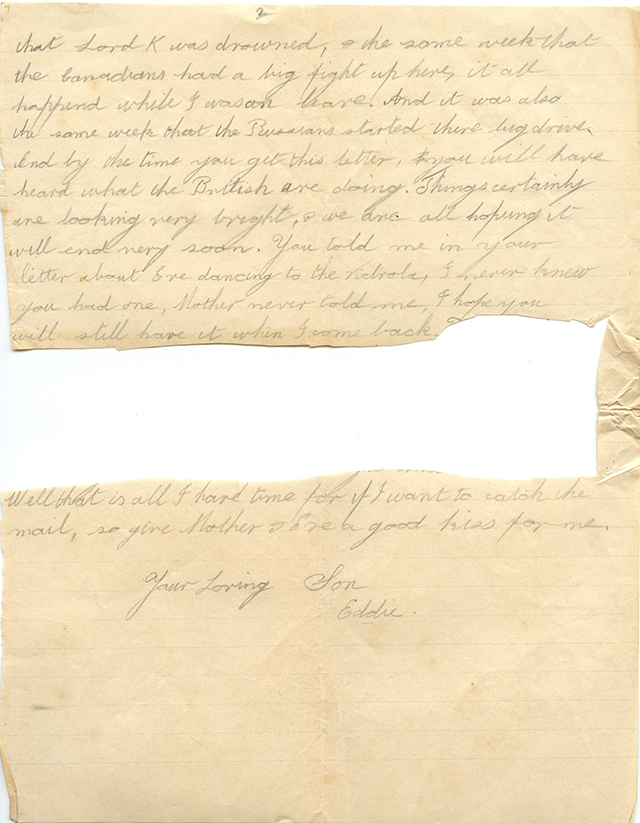 2
that Lord K was drowned, & the same week that
the Canadians had a big fight up here, it all
happend while I was on leave. And it was also
the same week that the Russians started there big drive.
And by the time you get this letter, you will have
heard what the British are doing. Things certainly
are looking very bright, & we are all hoping it
will end very soon. You told me in your
letter about Eve dancing to the victrola, I never knew
you had one, Mother never told me, I hope you
will still have it when I come back.
Well that is all I have time for if I want to catch the
mail, so give Mother & Eve a good kiss for me.
Your Loving Son
Eddie.